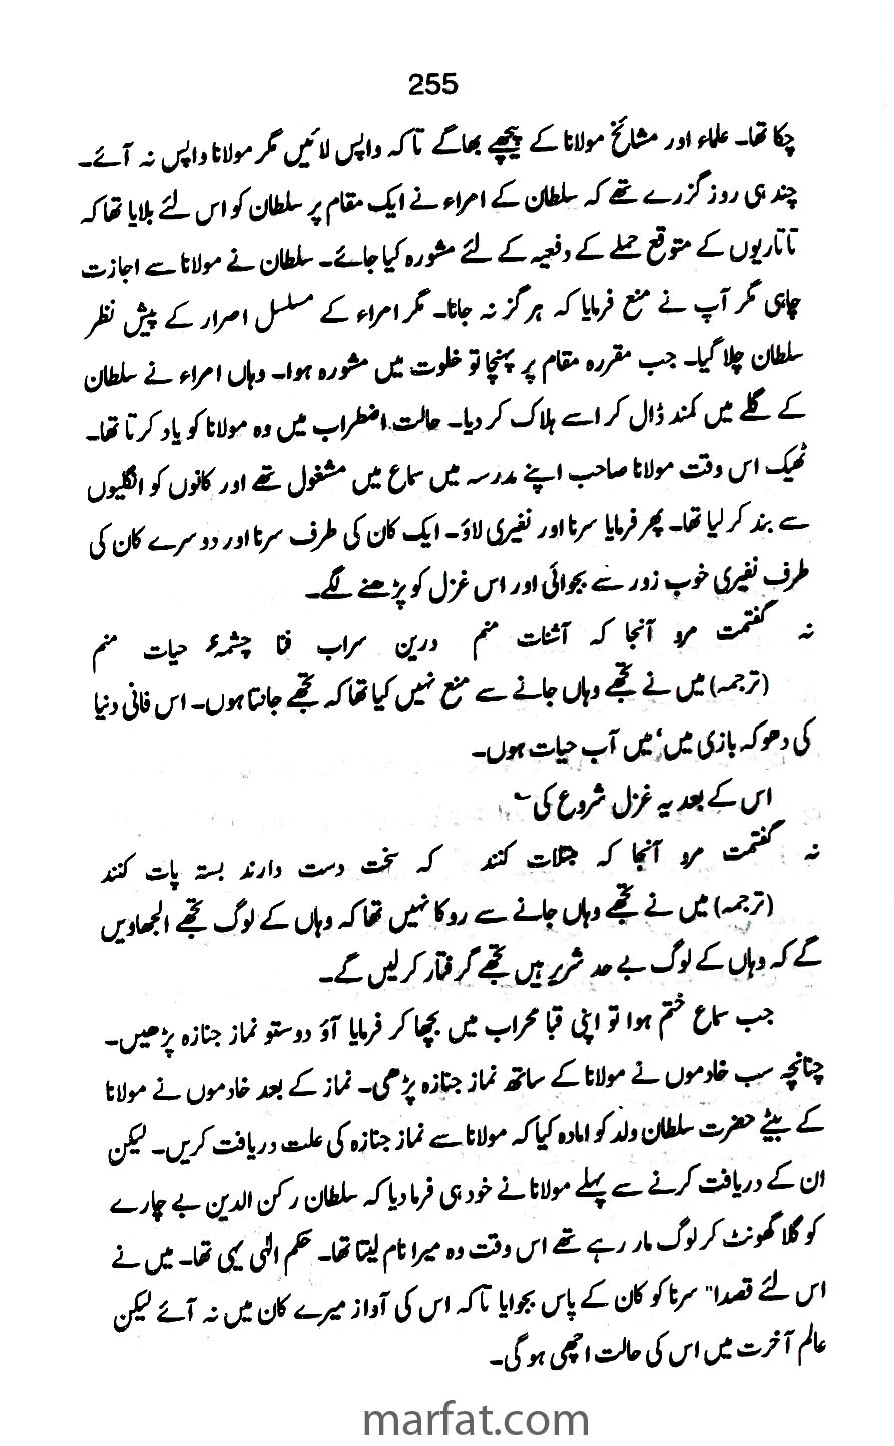 255
چکا تھا۔ علماء اور مشائخ مولانا کے پیچھے بھاگے تاکہ واپس لائیں مگر مولانا واپس نہ آئے۔
چند ہی روز گزرے تھے کہ سلطان کے امراء نے ایک مقام پر سلطان کو اس لئے بلایا تھا کہ
تاتاریوں کے متوقع حملے کے دفعیہ کے لئے مشورہ کیا جائے۔ سلطان نے مولانا سے اجازت
چاہی مگر آپ نے منع فرمایا کہ ہرگز نہ جانا۔ مگر امراء کے مسلسل اصرار کے پیش نظر
سلطان چلا گیا۔ جب مقررہ مقام پر پہنچا تو خلوت میں مشورہ ہوا۔ وہاں امراء نے سلطان
کے گلے میں کمند ڈال کر اسے ہلاک کر دیا۔ حالت اضطراب میں وہ مولانا کو یاد کرتا تھا۔
ٹھیک اس وقت مولانا صاحب اپنے مدرسہ میں سماع میں مشغول تھے اور کانوں کو انگلیوں
سے بند کر لیا تھا۔ پھر فرمایا سرنا اور نفیری لاؤ۔ ایک کان کی طرف سرنا اور دوسرے کان کی
طرف نفیری خوب زور سے بجوائی اور اس غزل کو پڑھنے لگے۔
نہ گفتمت مرو آنجا کہ آشنات منم درین سراب فنا چشمہء حیات منم
(ترجمہ) میں نے تجھے وہاں جانے سے منع نہیں کیا تھا کہ تجھے جانتا ہوں۔ اس فانی دنیا
کی دھوکہ بازی میں، میں آب حیات ہوں۔
اس کے بعد یہ غزل شروع کی ؎
نہ گفتمت مرو آنجا کہ مبتلات کنند کہ سخت دست دارند بستہ پات کنند
(ترجمہ) میں نے تجھے وہاں جانے سے روکا نہیں تھا کہ وہاں کے لوگ تجھے الجھاویں
گے کہ وہاں کے لوگ بے حد شریر ہیں تجھے گرفتار کر لیں گے۔
جب سماع ختم ہوا تو اپنی قبا محراب میں بچھا کر فرمایا آؤ دوستو نماز جنازہ پڑھیں۔
چنانچہ سب خادموں نے مولانا کے ساتھ نماز جنازہ پڑھی۔ نماز کے بعد خادموں نے مولانا
کے بیٹے حضرت سلطان ولد کو امادہ کیا کہ مولانا سے نماز جنازہ کی علت دریافت کریں۔ لیکن
ان کے دریافت کرنے سے پہلے مولانا نے خود ہی فرما دیا کہ سلطان رکن الدین بے چارے
کو گلا گھونٹ کر لوگ مار رہے تھے اس وقت وہ میرا نام لیتا تھا۔ حکم الٰہی یہی تھا۔ میں نے
اس لئے قصدا" سرنا کو کان کے پاس بجوایا تاکہ اس کی آواز میرے کان میں نہ آئے لیکن
عالم آخرت میں اس کی حالت اچھی ہو گی۔
marfat.com